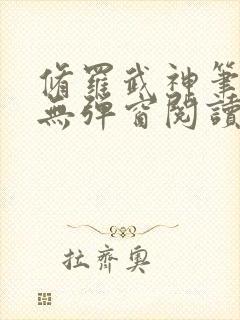 脩羅武神筆
無彈窗閱讀
拉齊奧